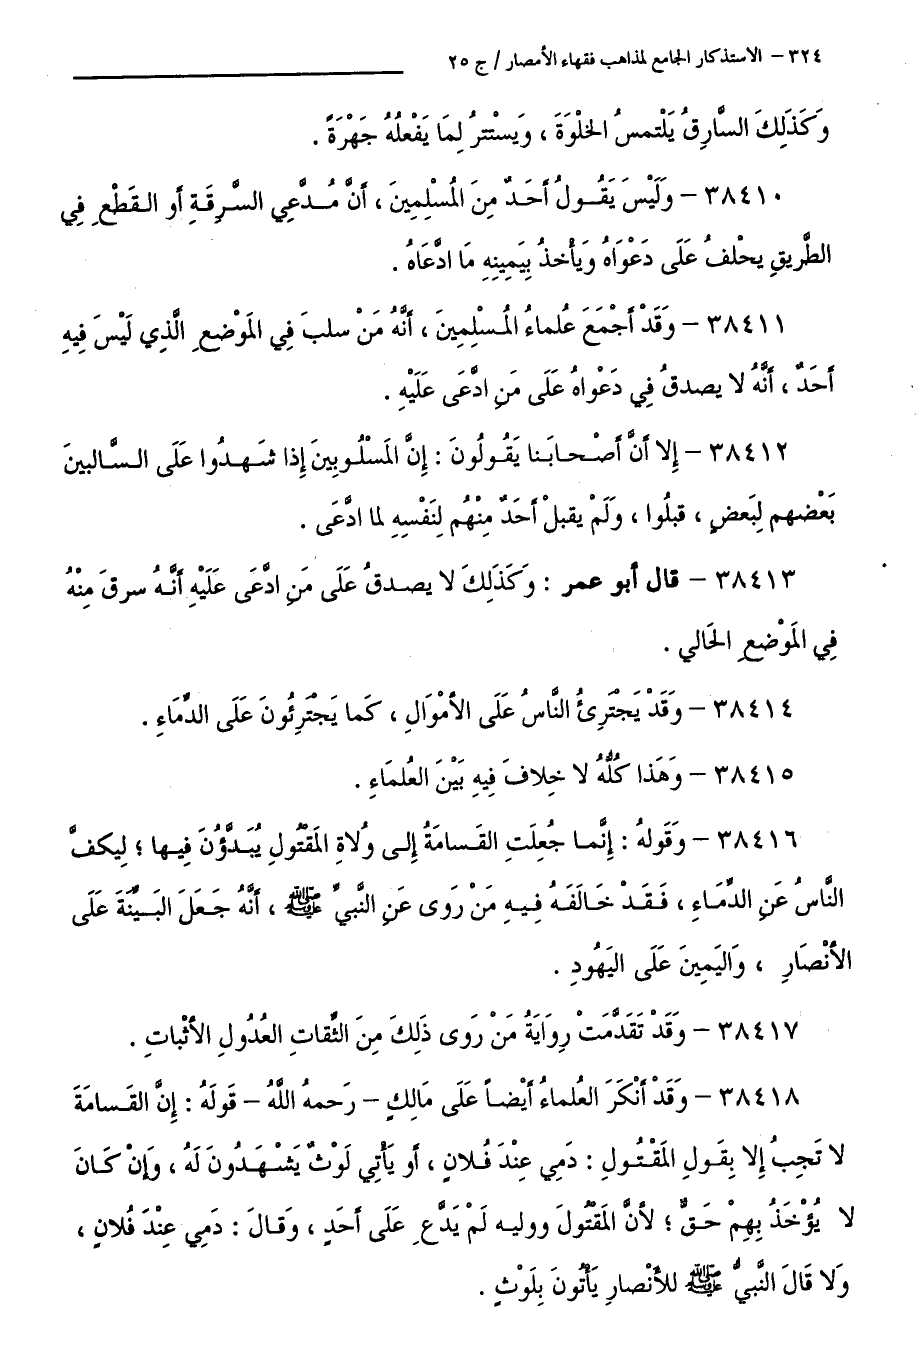 ٣٢٤ – الاستذكار الجامع لمذاهب فقهاء الأمصار / ج ٢٥
وَكَذَلِكَ السَّارِقُ يَلْتمسُ الخلْوَةَ ، وَيستْترُ لِمَا يَفْعلُهُ جَهْرَةً .
٣٨٤١٠ – وَلَيْسَ يَقُولُ أَحَدٌ مِنَ المُسْلِمِينَ ، أَنَّ مُدَّعِي السَّرِقَةِ أو القَطْعِ فِي
الطَّرِيقِ يحْلفُ عَلَى دَعْوَاهُ وَيَأْخذُ بِيَمِينِهِ مَا ادَّعَاهُ .
٣٨٤١١ – وَقَدْ أَجْمَعَ عُلماءُ المُسْلِمِينَ ، أَنَّهُ مَنْ سلبَ فِي المَوْضعِ الَّذِي لَيْسَ فِيهِ
أَحَدٌ ، أَنَّهُ لا يصدقُ فِي دَعْواهُ عَلَى مَنِ ادَّعَى عَلَيْهِ .
٣٨٤١٢ – إِلا أَنَّ أَصْحابَنا يَقُولُونَ : إِنَّ المَسْلُوبِينَ إِذا شَهدُوا عَلَى السَّالبينَ
بَعْضهم لِبَعضٍ ، قبلُوا ، وَلَمْ يقبلْ أَحَدٌ مِنْهُم لِنَفْسِهِ لما ادَّعَى .
٣٨٤١٣ – قال أبو عمر : وَكَذَلِكَ لا يصدقُ عَلَى مَنِ ادَّعَى عَلَيْهِ أَنَّهُ سرقَ مِنْهُ
فِي المَوْضعِ الخَالي .
٣٨٤١٤ – وَقَدْ يَجْتَرِئُ النَّاسُ عَلَى الأمْوَالِ ، كَما يَجْتَرِئُونَ عَلَى الدِّمَاءِ .
٣٨٤١٥ – وَهَذا كُلُّهُ لا خلافَ فِيهِ بَيْنَ العُلمَاءِ .
٣٨٤١٦ – وَقَولهُ : إِنَّما جُعلَتِ القَسامَةُ إِلى وُلاةِ المَقْتُولِ يُبَدَّؤُنَ فِيها ؛ لِيكفَّ
النَّاسُ عَنِ الدِّمَاءِ ، فَقَدْ خَالَفَهُ فِيهِ مَنْ رَوى عَنِ النَّبيِّ ﷺ ، أَنَّهُ جَعَلَ البَيِّنَةَ عَلى
الأنْصَارِ ، وَاليَمِينَ عَلَى اليَهُودِ .
٣٨٤١٧ – وَقَدْ تَقَدَّمَتْ رِوَايَةُ مَنْ رَوَى ذَلِكَ مِنَ الثِّقاتِ العُدُولِ الأثْباتِ .
٣٨٤١٨ – وَقَدْ أَنْكَرَ العُلماءُ أَيْضاً عَلَى مَالِكٍ – رَحمهُ اللَّهُ – قَولَهُ : إِنَّ القَسامَةَ
لا تَجبُ إِلا بِقَولِ المَقْتُولِ : دَمِي عِنْدَ فُلانٍ ، أو يَأْتِي لَوْثٌ يَشْهَدُونَ لَهُ ، وَإِنْ كَانَ
لا يُؤْخَذُ بِهِمْ حَقٌّ ؛ لأنَّ المَقْتُولَ ووليه لَمْ يَدَّعِ عَلَى أَحَدٍ ، وَقالَ : دَمِي عِنْدَ فُلانٍ ،
وَلا قَالَ النَّبيُّ ﷺ للأنْصارِ يَأْتُونَ بِلَوْثٍ .